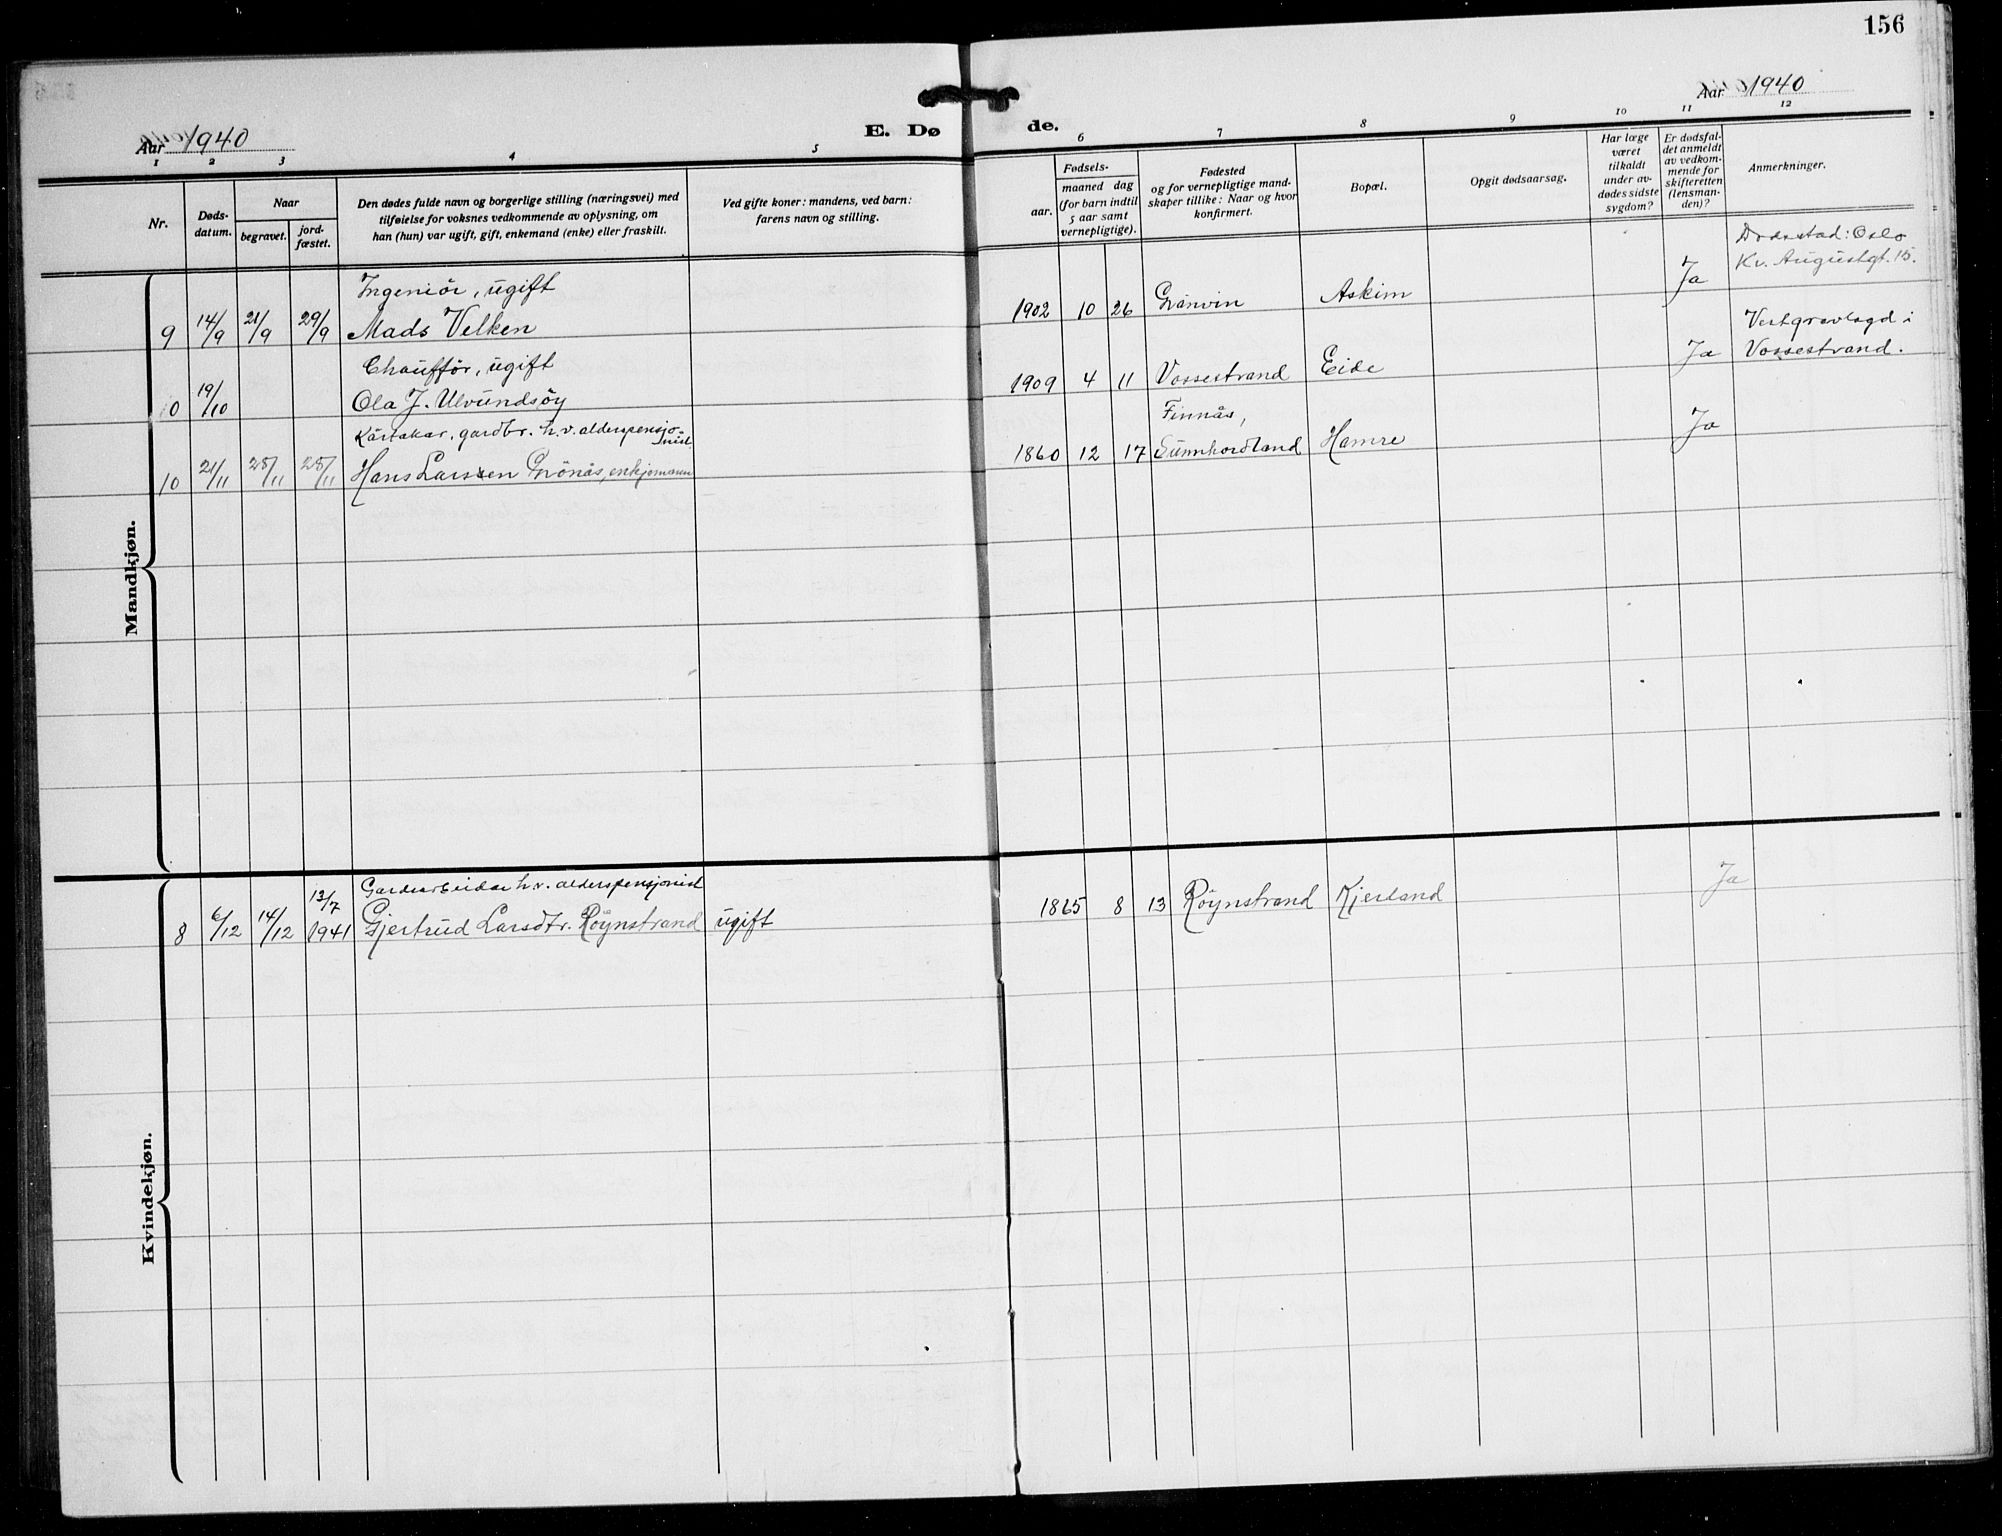 156
Aar 1940
E. Dø
de.
Aar 1940
1 2 3 4 5
6 7 8 9 10 11 12
Nr.
Døds-
datum.
Naar
begravet.
jord-
fæstet.
Den dødes fulde navn og borgerlige stilling (næringsvei) med
tilføielse for voksnes vedkommende av oplysning, om
han (hun) var ugift, gift, enkemand (enke) eller fraskilt.
Ved gifte koner: mandens, ved barn:
farens navn og stilling.
Fødsels-
aar.
maaned dag
(for barn indtil
5 aar samt
vernepligtige).
Fødested
og for vernepligtige mand-
skaper tillike: Naar og hvor
konfirmert.
Bopæl.
Opgit dødsaarsag.
Har læge
været
tilkaldt
under av-
dødes sidste
sygdom?
Er dødsfal-
det anmeldt
av vedkom-
mende for
skifteretten
(lensman-
den)?
Anmerkninger.
Mandkjøn.
Ingeniör, ugift
9 14/9 21/9 29/9 Mads Velken 1902 10 26 Granvin Askim Ja
Dødsstad: Oslo
Kr. Augustgt. 15.
Chaufför, ugift
10 19/10 Ola J. Ulvundsöy 1909 4 11 Vossestrand Eide Ja
Vert gravlagd i
Vossestrand.
gardbr. h.v. alderspensjo-
nist
Finnås,
10 21/11 25/11 25/11 Hans Larssen Grönås, enkjemann 1860 12 17 Sunnhordland Hamre Ja
Kvindekjøn.
Gardsarbeidar h.v. alderspensjonist
13/7
8 6/12 14/12 1941 Gjertrud Larsdtr. Röynstrand ugift 1865 8 13 Röynstrand Kjerland Ja